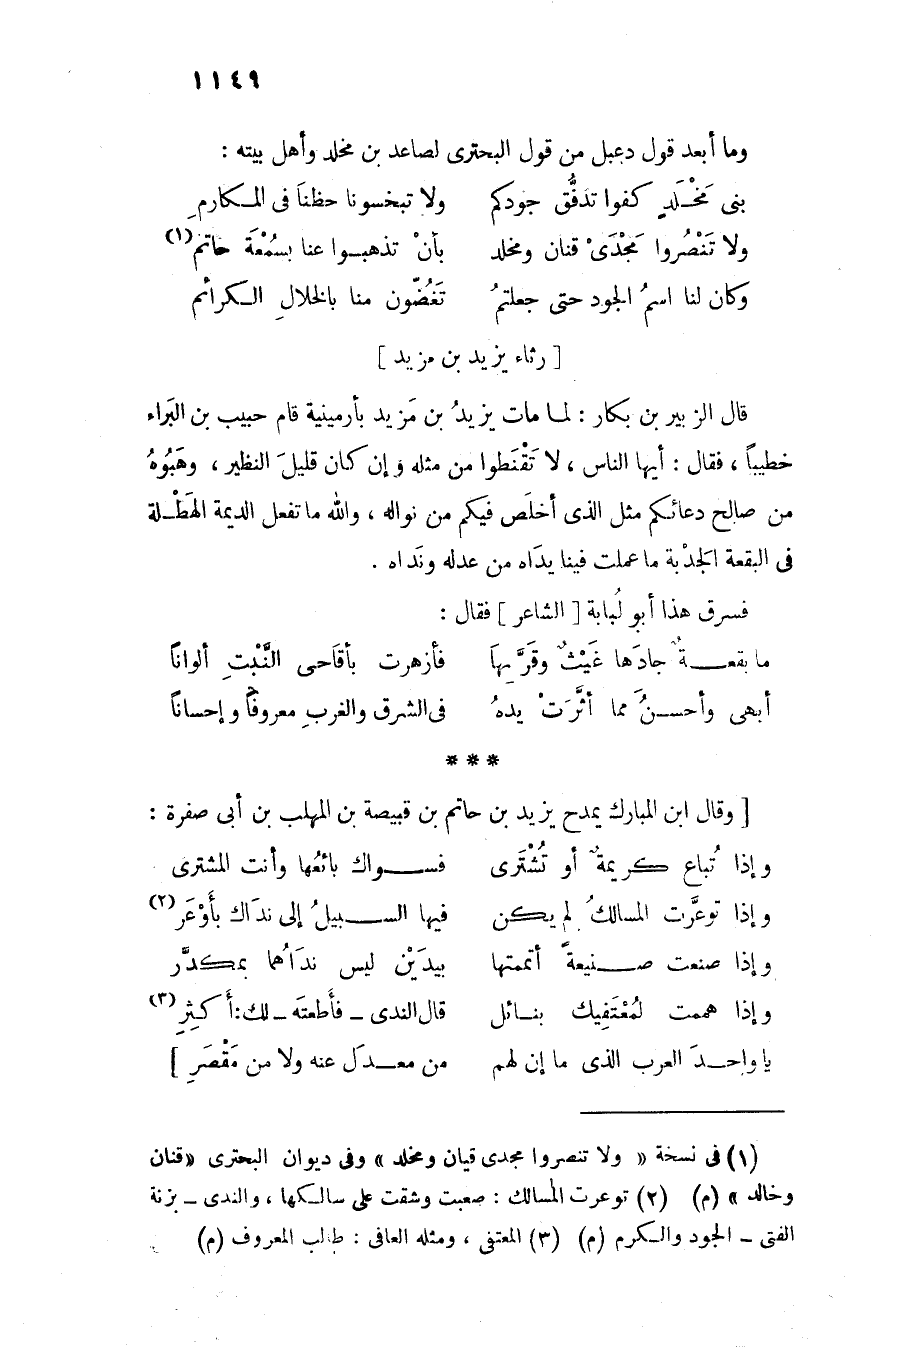 ١١٤٩
وما أبعد قول دعبل من قول البحترى لصاعد بن مخلد وأهل بيته :
بنى مَخْـلَدٍ كفوا تدفُّق جودكم ولا تبخسونا حظنَا فى المـكارمِ
ولا تَنْصُروا مَجْدَىْ قنان ومخلد بأنْ تذهبـوا عنا بسُمْعَة حاتم (١)
وكان لنا اسمُ الجود حتى جعلتمُ تَغُضُّون منا بالخلالِ الـكرائم
[ رثاء يزيد بن مزيد ]
قال الزبير بن بكار : لما مات يزيدُ بن مَزيد بأرمينية قام حبيب بن البَراء
خطيباً ، فقال : أيها الناس ، لا تَقْنَطوا من مثله وإن كان قليلَ النظير ، وهَبُوهُ
من صالح دعائكم مثل الذى أخلَص فيكم من نواله ، والله ما تفعل الديمة الهَطْـلة
فى البقعة الجَدْبة ما عملت فينا يدَاه من عدله ونَداه .
فسرق هذا أبو لُبابة [ الشاعر ] فقال :
ما بقعـــةٌ جادَها غَيْثٌ وقَرَّبهَا فأزهرت بأقَاحى النَّبْتِ ألواناً
أبهى وأحســنُ مما أثَّرَتْ يدهُ فى الشرق والغربِ معروفاً وإحساناً
* * *
[ وقال ابن المبارك يمدح يزيد بن حاتم بن قبيصة بن المهلب بن أبى صفرة :
وإذا تُباع كـريمةٌ أو تُشْتَرى فســـواك بائعُها وأنت المشترى
وإذا توعَّرت المسالكُ لم يكـن فيها الســـبيلُ إلى ندَاك بأَوْعَرِ (٢)
وإذا صنعت صـــنيعةً أتممتها بيدَيْن ليس ندَاهُما بمـكدَّر
وإذا هممت لمُعْتَفِيك بنـائل قال الندى ـ فأطعتَه ـ لك: أَكثِرِ (٣)
يا واحـدَ العرب الذى ما إن لهم من معـدَل عنه ولا من مَقْصَرِ ]
(١) فى نسخة « ولا تنصروا مجدى قيان ومخلد » وفى ديوان البحترى « قنان
وخالد » (م) (٢) توعرت المسالك : صعبت وشقت على سالكها ، والندى ـ بزنة
الفتى ـ الجود والـكرم (م) (٣) المعتفى ، ومثله العافى : طالب المعروف (م)